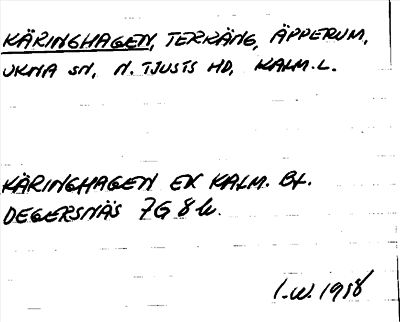 KÄRINGHAGEN, TERRÄNG, ÄPPERUM,
UKNA SN, N. TJUSTS HD, KALM. L.
KÄRINGHAGEN EK KALM. BL.
DEGERSNÄS 7G 8h.
I.W. 1988